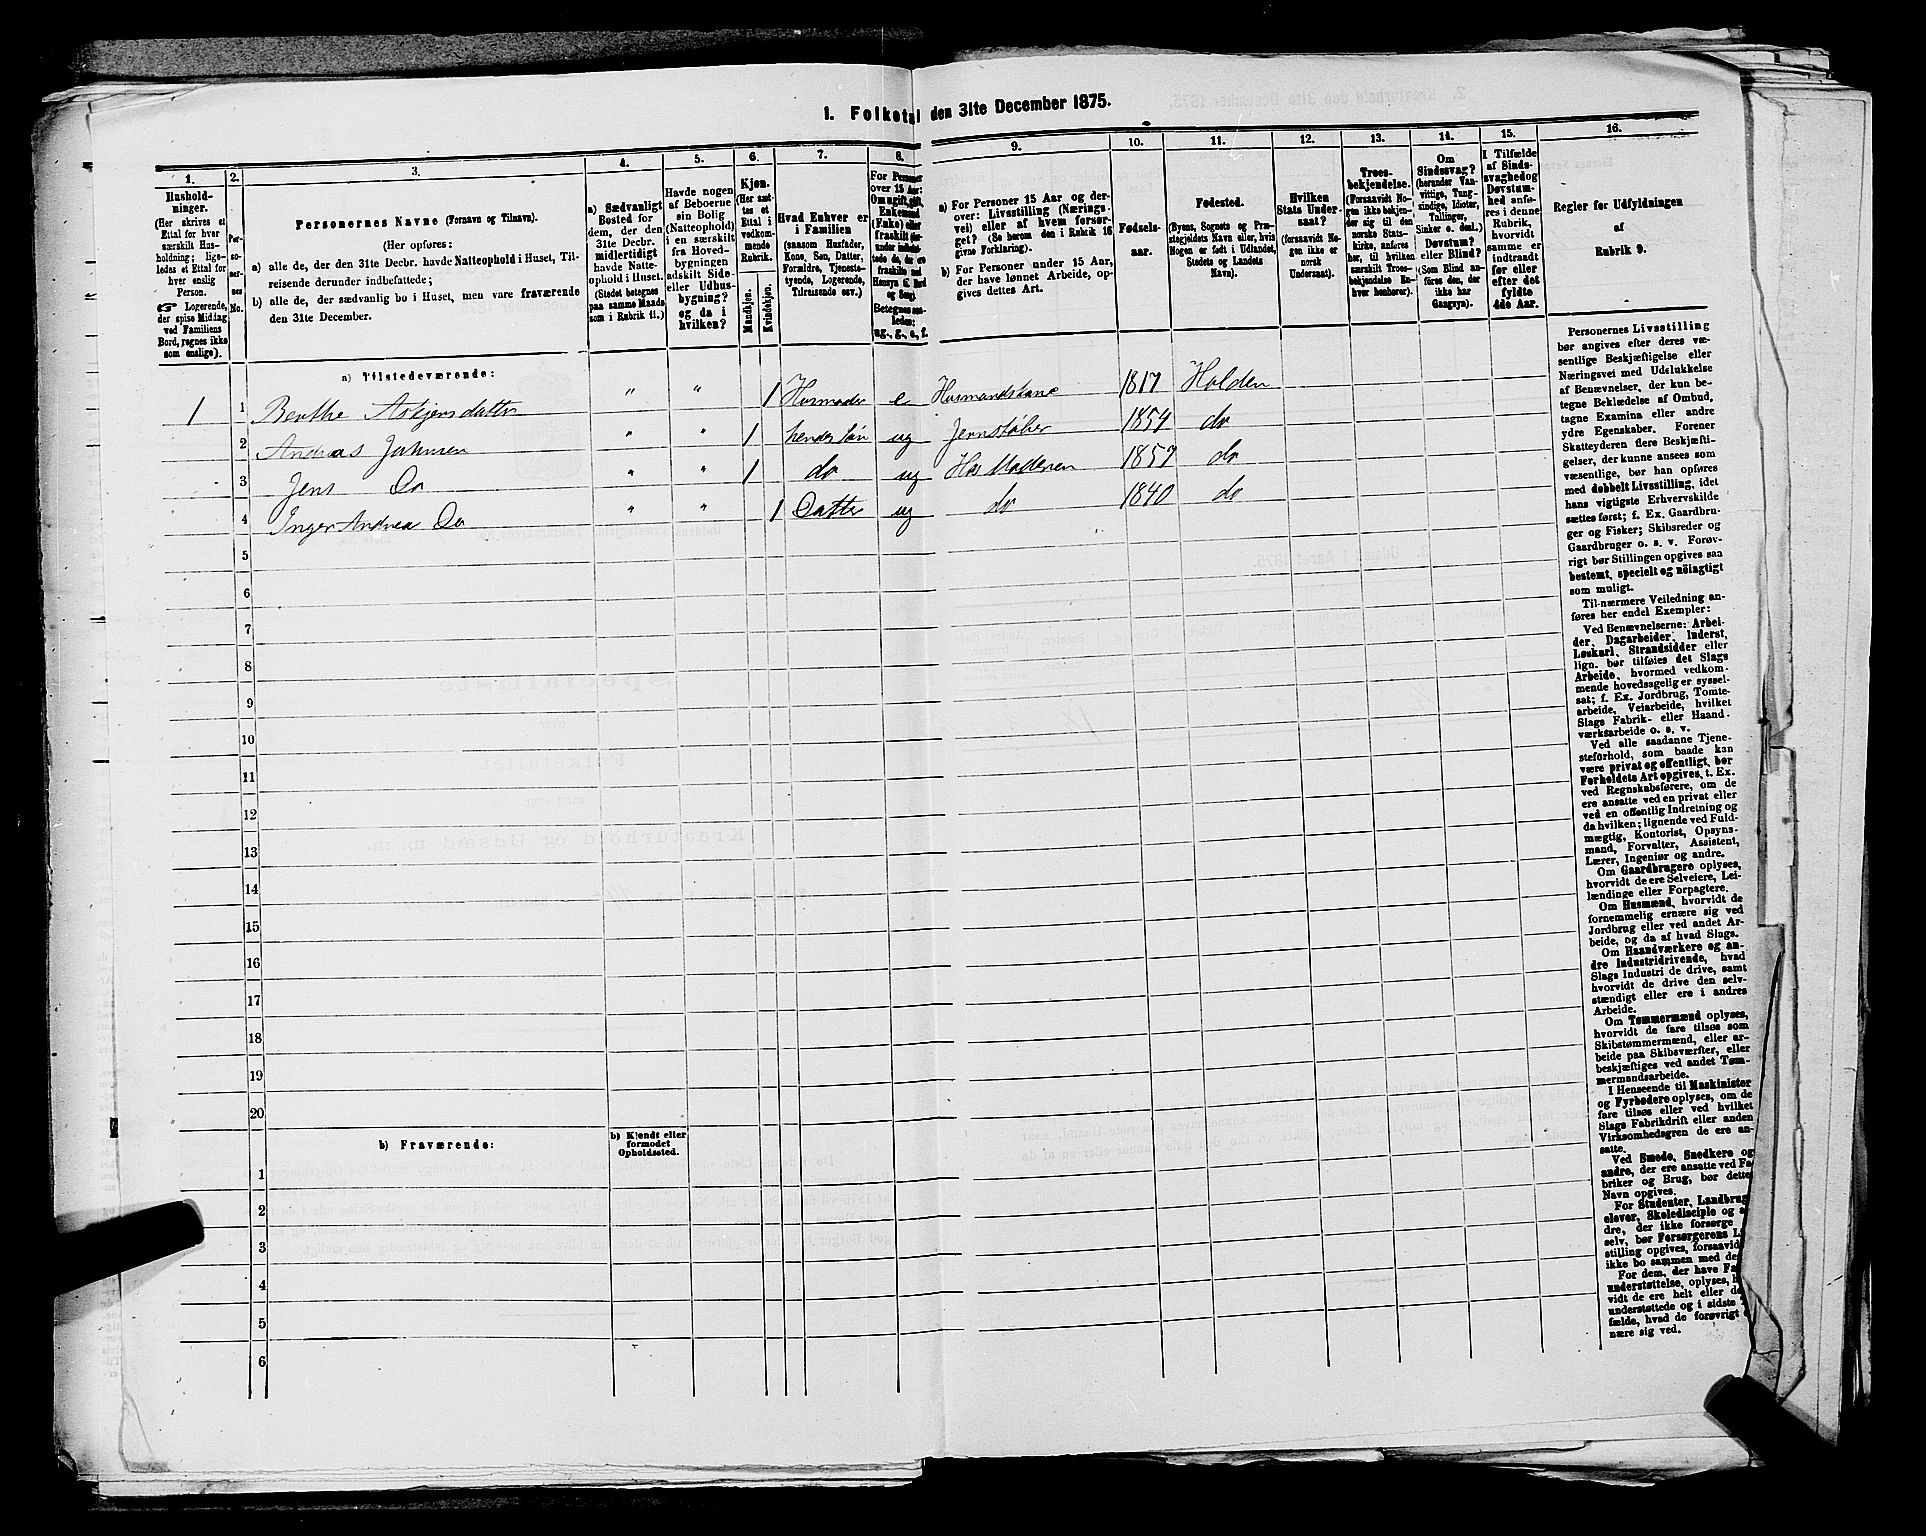 1. Folketal den 31te December 1875.
1.
Hushold-
ninger.
(Her skrives et
Ettal for hver
særskilt Hus-
holdning; lige-
ledes et Ettal for
hver enslig
Person.
☞ Logerende,
der spise Middag
ved Familiens
Bord, regnes ikke
som enslige).
2.
Per-
so-
ner-
nes
No.
3.
Personernes Navne (Fornavn og Tilnavn).
(Her opføres:
a) alle de, der den 31te Decbr. havde Natteophold i Huset, Til-
reisende derunder indbefattede;
b) alle de, der sædvanlig bo i Huset, men vare fraværende
den 31te December.
4.
a) Sædvanligt
Bosted for
dem, der den
31te Decbr.
midlertidigt
havde Natte-
ophold i Huset.
(Stedet betegnes
paa samme Maade
som i Rubrik 11.)
5.
Havde nogen
af Beboerne
sin Bolig
(Natteophold)
i en særskilt
fra Hoved-
bygningen
adskilt Side-
eller Udhus-
bygning?
og da i
hvilken?
6.
Kjøn.
(Her sæt-
tes et
Ettal i
vedkom-
mende
Rubrik.
Mandkjøn.
Kvindekjøn.
7.
Hvad Enhver er
i Familien
(saasom Husfader,
Kone, Søn, Datter,
Forældre, Tjeneste-
tyende, Logerende,
Tilreisende osv.)
8.
For Personer
over 15 Aar:
Om ugift, gift,
Enkemand
(Enke) eller
fraskilt
Betegnes saa-
ledes:
ug., g., e., f.
9.
a) For Personer 15 Aar og der-
over: Livsstilling (Nærings-
vei) eller af hvem forsør-
get? (Se herom den i Rubrik 16
givne Forklaring).
b) For Personer under 15 Aar,
der have lønnet Arbeide, op-
gives dettes Art.
10.
Fødsels-
aar.
11.
Fødested.
(Byens, Sognets og Præ-
stegjeldets Navn eller, hvis
Nogen er født i Udlandet,
Stedets og Landets
Navn).
12.
Hvilken
Stats Under-
saat?
(forsaavidt No-
gen ikke er
norsk
Undersaat).
13.
Troes-
bekjendelse.
(Forsaavidt No-
gen ikke bekjen-
der sig til den
norske Stats-
kirke, anføres
her, til hvilken
særskilt Troes-
bekjendelse En-
hver henhører).
14.
Om
Sindssvag?
(herunder Van-
vittige, Tung-
sindige, Idioter,
Tullinger,
Sinker o. desl.)
Døvstum?
eller Blind?
(Som Blind an-
føres den, der
ikke har
Gangsyn).
15.
I Tilfælde
af Sinds-
svaghed og
Døvstum-
hed anfø-
res i denne
Rubrik,
hvorvidt
samme er
indtraadt
før eller
efter det
fyldte
4de Aar.
16.
Regler for Udfyldningen
af
Rubrik 9.
a) Tilstedeværende:
1 1 Berthe Askjersdatter " " 1 Husmoder e Husmandskone 1817 Holden
2 Andreas Johnsen " " 1 hendes Søn ug Jernstøber 1854 do
3 Jens Do " " 1 do ug Hos Moderen 1857 do
4 Inger Andrea Do " " 1 Datter ug do 1840 do
5
6
7
8
9
10
11
12
13
14
15
16
17
18
19
20
b) Fraværende:
b) Kjendt eller
formodet
Opholdssted.
1
2
3
4
5
6
Personernes Livsstilling
bør angives efter deres væ-
sentlige Beskjæftigelse eller
Næringsvei med Udelukkelse
af Benævnelser, der kun be-
tegne Beklædelse af Ombud,
tagne Examina eller andre
ydre Egenskaber. Forener
Skatteyderen flere Beskjæfti-
gelser, der kunne ansees som
væsentlige, bør han opføres
med dobbelt Livsstilling, idet
hans vigtigste Erhvervskilde
sættes først; f. Ex. Gaardbru-
ger og Fisker; Skibsreder og
Gaardbruger o. s. v. Forøv-
rigt bør Stillingen opgives saa
bestemt, specielt og nöiagtigt
som muligt.
Til nærmere Veiledning an-
føres her endel Exempler:
Ved Benævnelserne: Arbei-
der, Dagarbeider, Inderst,
Løskarl, Strandsidder eller
lign. bør tilføies det Slags
Arbeide, hvormed vedkom-
mende hovedsagelig er syssel-
sat; f. Ex. Jordbrug, Tomte-
arbeide, Veiarbeide, hvilket
Slags Fabrik- eller Haand-
værksarbeide o. s. v.
Ved alle saadanne Tjene-
steforhold, som baade kan
være privat og offentligt, bør
Forholdets Art opgives, t. Ex.
ved Regnskabsførere, om de
ere ansatte ved en privat eller
ved en offentlig Indretning og
da hvilken; lignende ved Fuld-
mægtig, Kontorist, Opsyns-
mand, Forvalter, Assistent,
Lærer, Ingeniør og andre.
Om Gaardbrugere oplyses,
hvorvidt de ere Selveiere, Lei-
lændinge eller Forpagtere.
Om Husmænd, hvorvidt de
fornemmelig ernære sig ved
Jordbrug eller ved andet Ar-
beide, og da af hvad Slags.
Om Haandværkere og an-
dre Industridrivende, hvad
Slags Industri de drive, samt
hvorvidt de drive den selv-
stændigt eller ere i andres
Arbeide.
Om Tømmermænd oplyses,
hvorvidt de fare tilsøs som
Skibstømmermænd, eller ar-
beide paa Skibsværfter, eller
beskjæftiges ved andet Tøm-
mermandsarbeide.
I Henseende til Maskinister
og Fyrbødere oplyses, om de
fare tilsøs eller ved hvilket
Slags Fabrikdrift eller anden
Virksomhedsgren de ere an-
satte.
Ved Smede, Snedkere og
andre, der ere ansatte ved Fa-
briker og Brug, bør dette
Navn opgives.
For Studenter, Landbrug
elever, Skoledisciple og
dre, der ikke forsørge
selv, bør Forsørgerens
stilling opgives, forsaavid
ikke bo sammen med de
For dem, der have
understøttelse, oplyses,
vidt de ere helt eller
understøttede og i sidste
fælde, hvad de forøvrigt
nære sig ved.